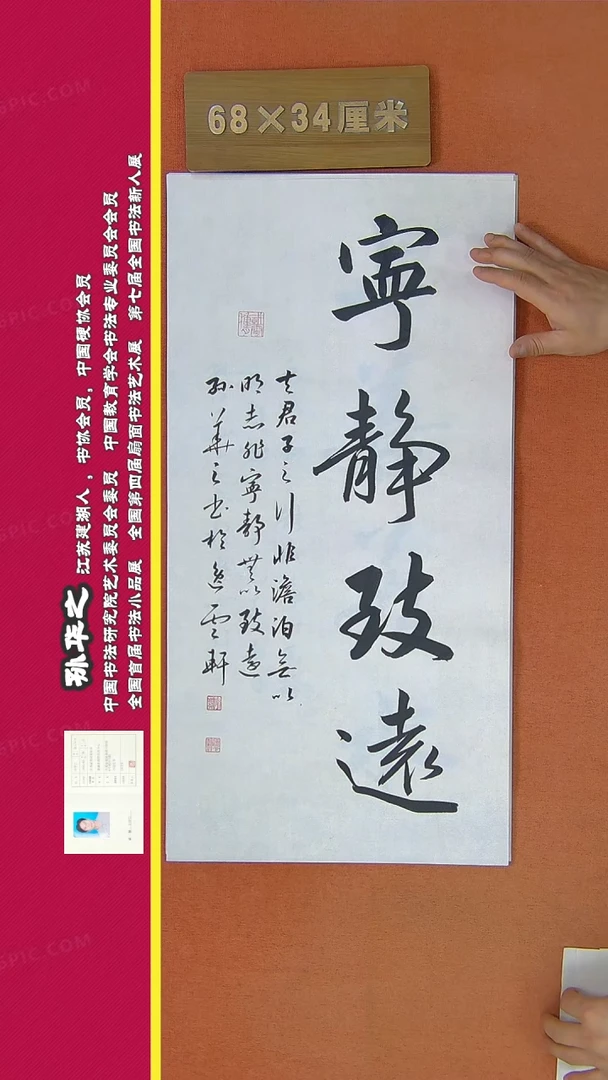 68×34厘米
寧静致遠
夫君子之行非澹泊無以
明志非寧静無以致遠
孫華之书於逸雲軒
孙华之 江苏建湖人，书协会员，中国硬协会员
中国书法研究院艺术委员会委员 中国教育学会书法专业委员会会员
全国首届书法小品展 全国第四届扇面书法艺术展 第七届全国书法新人展